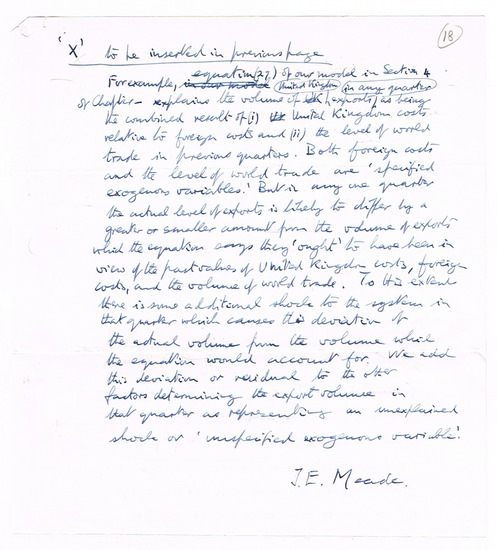 18
'X' to be inserted in previous page
For example, in our model equation (27) of our model in Section 4
of Chapter – explains the volume of United Kingdom exports in any quarter as being
the combined result of (i) United Kingdom costs
relative to foreign costs and (ii) the level of world
trade in previous quarters. Both foreign costs
and the level of world trade are 'specified
exogenous variables.' But in any one quarter
the actual level of exports is likely to differ by a
greater or smaller amount from the volume of exports
which the equation says they 'ought' to have been in
view of the past values of United Kingdom costs, foreign
costs, and the volume of world trade. To this extent
there is some additional shock to the system in
that quarter which causes this deviation of
the actual volume from the volume which
the equation would account for. We add
this deviation or residual to the other
factors determining the export volume in
that quarter as representing an unexplained
shock or 'unspecified exogenous variable'.
J.E. Meade.